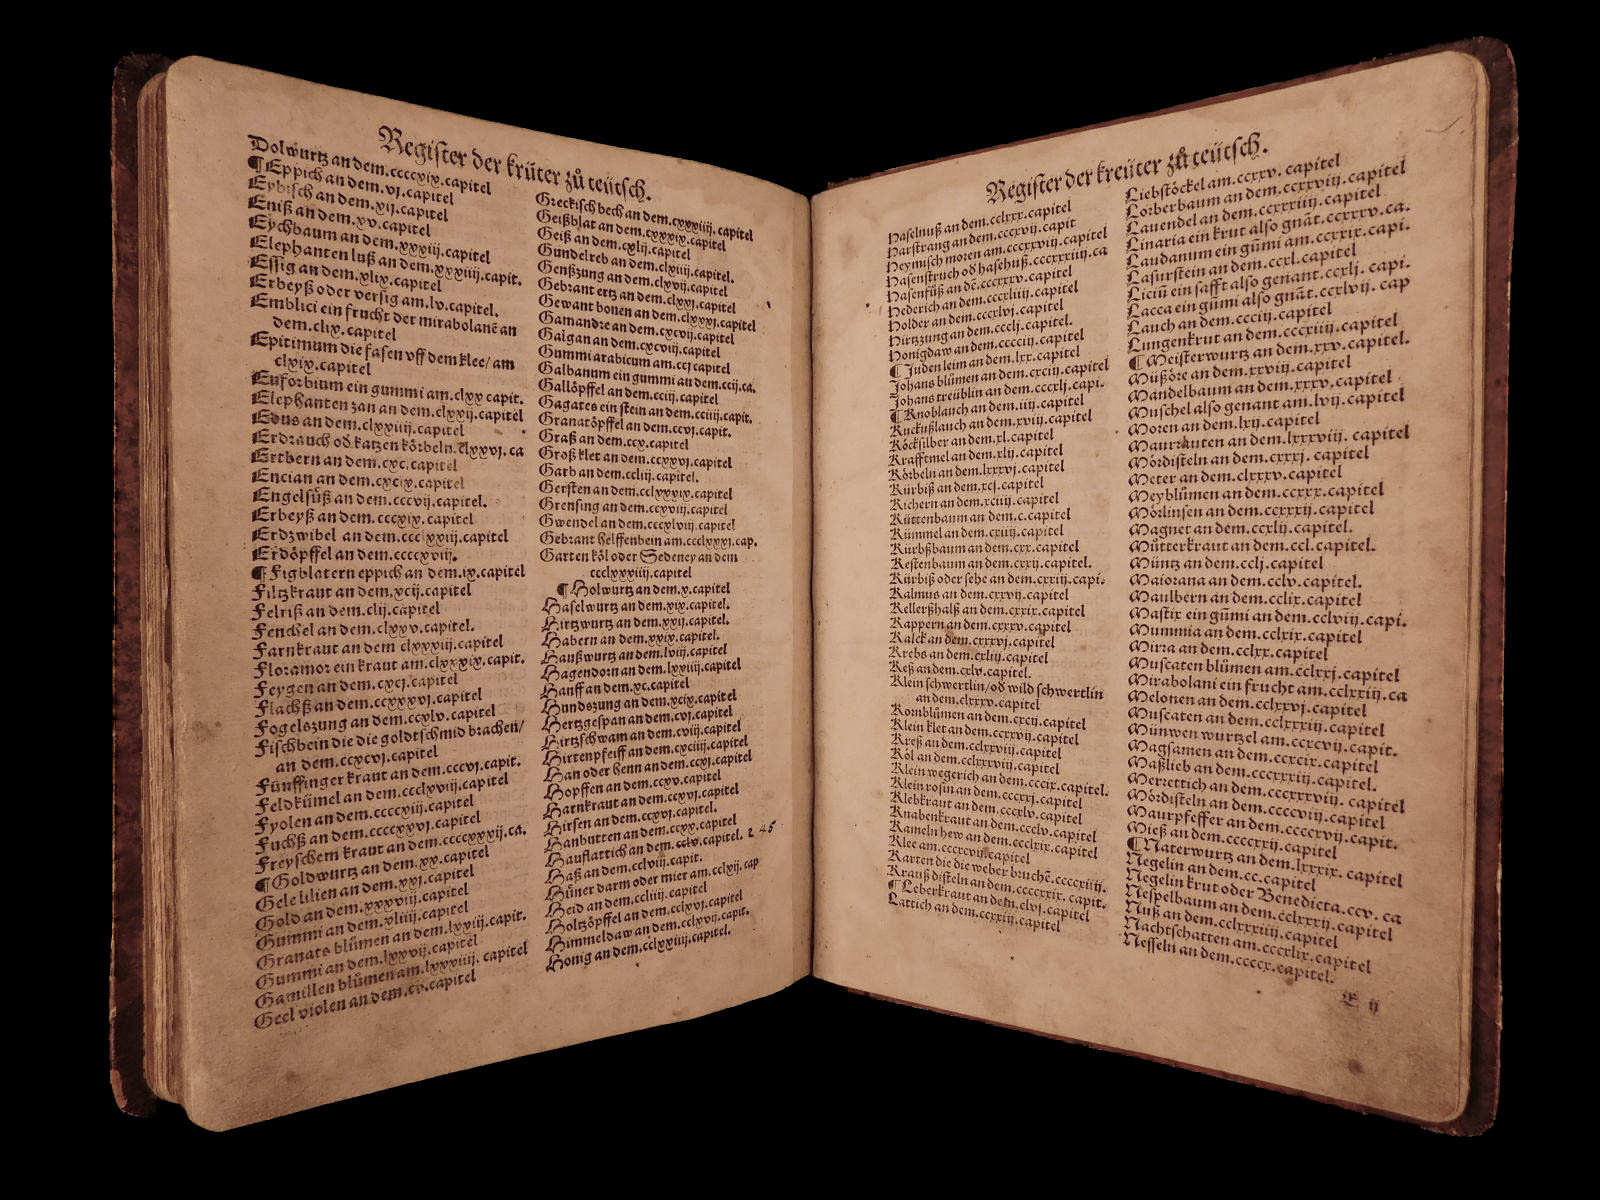 Register der krüter zů teütsch.
Dolwurtz an dem.ccccxix.capitel
¶Eppich an dem.vj.capitel
Eybisch an dem.xij.capitel
Eniß an dem.xv.capitel
Eychbaum an dem.xxxiij.capitel
Elephanten luß an dem.xxxiiij.capit.
Essig an dem.xlix.capitel
Erbeyß oder versig am.lv.capitel.
Emblici ein frucht der mirabolanē an
dem.clix.capitel
Epitimum die fasen vff dem klee/ am
clxix.capitel
Euforbium ein gummi am.clxx capit.
Elephanten zan an dem.clxxij.capitel
an dem.clxxiiij.capitel
Erdrauch od katzen körbeln.clxxvj.ca
Ertbern an dem.cxc.capitel
Encian an dem.cxcix.capitel
Engelsüß an dem.cccvij.capitel.
Erbeyß an dem.cccxix.capitel
Erdzwibel an dem.ccclxxiij.capitel
Erdöpffel an dem.ccccxviij.
¶Figblatern eppich an dem.ix.capitel
Filtzkraut an dem.xcij.capitel
Felriß an dem.clij.capitel
Fenchel an dem.clxxv.capitel.
Farnkraut an dem clxxxiij.capitel
Floramor ein kraut am.clxxxix.capit.
Feygen an dem.cxcj.capitel
Flachß an dem.ccxxxvj.capitel
Fogelszung an dem.ccxlv.capitel
Fischbein die die goldtschmid brachen/
an dem.ccxcvj.capitel
Fünffinger kraut an dem.cccvj.capit.
Feldkümel an dem.ccclxviij.capitel
Fyolen an dem.ccccxiij.capitel
Fuchß an dem.ccccxxvj.capitel
Freyschem kraut an dem.ccccxxxij.ca.
¶Goldwurtz an dem.xx.capitel
Gele lilien an dem.xxj.capitel
Gold an dem.xxxviij.capitel
Gummi an dem.xliiij.capitel
Granats blůmen an dem.lxxiij.capit.
Gummi an dem.lxxvij.capitel
Gamillen blůmen am.lxxxiiij. capitel
Geel violen an dem.cv.capitel
Greckisch bech an dem.cxxxiiij.capitel
Geißblat an dem.cxxxix.capitel
Geiß an dem.cxlij.capitel
Gundelreb an dem.clxiij.capitel.
Genßzung an dem.clxvij.capitel
Gebrant ertz an dem.clxxj.capitel
Gewant bonen an dem.clxxxj.capitel
Gamandre an dem.cxcvij.capitel
Galgan an dem.cxcviij.capitel
Gummi arabicum am.ccj capitel
Galbanum ein gummi an dem.ccij.ca.
Gallöpffel an dem.cciij.capitel
Gagates ein stein an dem.cciiij.capit.
Granatöpffel an dem.ccvj.capit.
Graß an dem.ccx.capitel
Groß klet an dem.ccxxvj.capitel
Garb an dem.ccliij.capitel.
Gersten an dem.cclxxxix.capitel
Grensing an dem.cccxviij.capitel
Gwendel an dem.cccxlviij.capitel
Gebrant helffenbein am.ccclxxxj.cap.
Garten köl oder Sedeney an dem
ccclxxxiiij.capitel
¶Holwurtz an dem.x.capitel
Haselwurtz an dem.xix.capitel.
Hirtzwurtz an dem.xxij.capitel
Habern an dem.xxix.capitel.
Haußwurtz an dem.lviij.capitel
Hagendorn an dem.lxxiiij.capitel
Hanff an dem.xc.capitel
Hundszung an dem.xcix.capitel
Hertzgespan an dem.cvj.capitel
Hirtzschwam an dem.cviij.capitel
Hirtenpfeiff an dem.cxciiij.capitel
Han oder henn an dem.ccxj.capitel
Hopffen an dem.ccxv.capitel
Harnkraut an dem.ccxvj.capitel
Hirsen an dem.ccxvj.capitel.
Hanbutten an dem.ccxx.capitel
Hauflattich an dem.cclv.capitel. 245
Haß an dem.cclviij.capit.
Hüner darm oder mier am.cclxij.cap
Heid an dem.ccliiij.capitel
Holtzöpffel an dem.cclxvj.capitel
Himmeldaw an dem.cclxvij.capit.
Honig an dem.cclxxiiij.capitel.
Register der kreüter zů teütsch.
Haselnuß an dem.cclxxx.capitel
Harstrang an dem.cccxvij.capit
Heymisch moren am.cccxxviij.capitel
Hasenstruch od hasehuß.cccxxxiiij.ca
Hasenfüß an dē.cccxxxv.capitel
Hederich an dem.cccxliiij.capitel
Holder an dem.cccxlvj.capitel
Hirtzzung an dem.ccclj.capitel.
Honigdaw an dem.cccciij.capitel
¶Juden leim an dem.lxx.capitel
Johans blůmen an dem.cxciij.capitel
Johans treüblin an dem.cccxlj.capi.
¶Knoblauch an dem.iiij.capitel
Kuckußlauch an dem.xviij.capitel
Köcksilber an dem.xl.capitel
Krafftmel an dem.xlij.capitel
Körbeln an dem.lxxxvj.capitel
Kürbiß an dem.xcj.capitel
Kichern an dem.xciiij.capitel
Küttenbaum an dem.c.capitel
Kümmel an dem.cxiiij.capitel
Kürbßbaum an dem.cxx.capitel
Kestenbaum an dem.cxxij.capitel.
Kürbiß oder sehe an dem.cxxiij.capi.
Kalmus an dem.cxxvij.capitel
Kellerßhalß an dem.cxxix.capitel
Kappern an dem.cxxxv.capitel
Kalck an dem.cxxxvj.capitel
Krebs an dem.cxliij.capitel
Keß an dem.cxlv.capitel.
Klein schwertlin/od wild schwertlin
an dem.clxxxv.capitel
Kornblůmen an dem.cxcij.capitel
Klein klet an dem.ccxxvij.capitel
Kreß an dem.cclxxviij.capitel
Köl an dem.cclxxxviij.capitel
Klein wegerich an dem.cccix.capitel.
Klein rosin an dem.cccxxj.capitel
Klebkraut an dem.cccxlv.capitel
Knabenkraut an dem.ccclv.capitel
Kameln hew an dem.ccclxix.capitel
Klee am.ccccxvij.capitel
Karten die die weber bruchē.ccccxiiij.
Krauß disteln an dem.ccccxxix. capit.
¶Leberkraut an dem.clvj.capitel
Lattich an dem.ccxxiij.capitel
Liebstöckel am.ccxxv.capitel
Lorberbaum an dem.ccxxviij.capitel
Lauendel an dem.ccxxxiiij.capitel
Linaria ein krut also gnāt.ccxxxv.ca.
Laudanum ein gūmi am.ccxxix.capi.
Lasurstein an dem.ccxl.capitel
Liciū ein safft also genant.ccxlj. capi.
Lacca ein gūmi also gnāt.ccxlvij. cap
Lauch an dem.ccciij.capitel
Lungenkrut an dem.cccxiiij.capitel
¶Meisterwurtz an dem.xxv.capitel.
Müßöre an dem.xxviij.capitel
Mandelbaum an dem.xxxv.capitel
Muschel also genant am.lvij.capitel
Moren an dem.lxij.capitel
Maurrauten an dem.lxxxviij. capitel
Mördisteln an dem.cxxxj.capitel
Meter an dem.clxxxv.capitel
Meyblůmen an dem.ccxxx.capitel
Mörlinsen an dem.ccxxxij.capitel
Magnet an dem.ccxlij.capitel.
Můtterkraut an dem.ccl.capitel.
Müntz an dem.cclj.capitel
Maiorana an dem.cclv.capitel.
Maulbern an dem.cclix.capitel
Mastix ein gūmi an dem.cclviij.capi.
Mummia an dem.cclxix.capitel
Mirra an dem.cclxx.capitel
Muscaten blůmen am.cclxxj.capitel
Mirabolani ein frucht am.cclxxiij.ca
Melonen an dem.cclxxvj.capitel
Muscaten an dem.cclxxxiij.capitel
Münwen wurtzel am.ccxcvij.capit.
Magsamen an dem.ccxcix.capitel
Maßlieb an dem.cccxxxiij.capitel.
Merrettich an dem.cccxxxviij. capitel
Mördisteln an dem.ccccviij.capitel
Maurpfeffer an dem.ccccxvij.capit.
Mieß an dem.ccccxxij.capitel
¶Naterwurtz an dem.lxxxix. capitel
Negelin an dem.cc.capitel
Negelin krut oder Benedicta.ccv. ca
Nespelbaum an dem.cclxxxij.capitel
Nuß an dem.cclxxxiiij.capitel
Nachtschatten am.cccxlix.capitel
Nesseln an dem.ccccx.capitel.
E ij